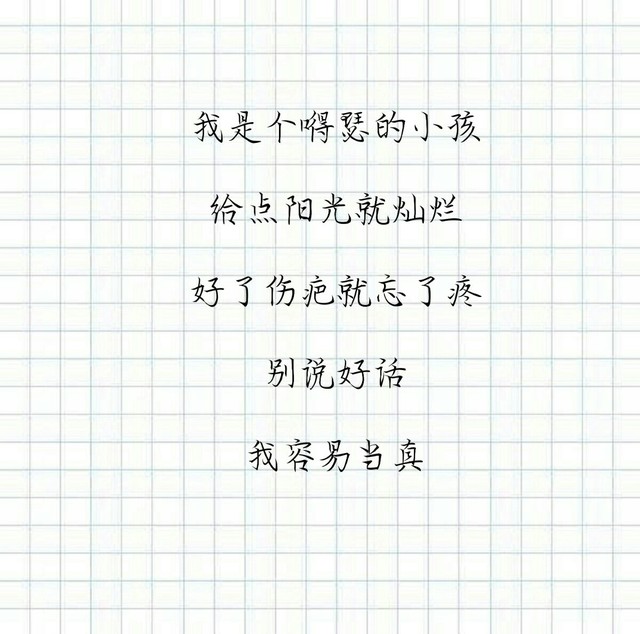 我是个嘚瑟的小孩
给点阳光就灿烂
好了伤疤就忘了疼
别说好话
我容易当真